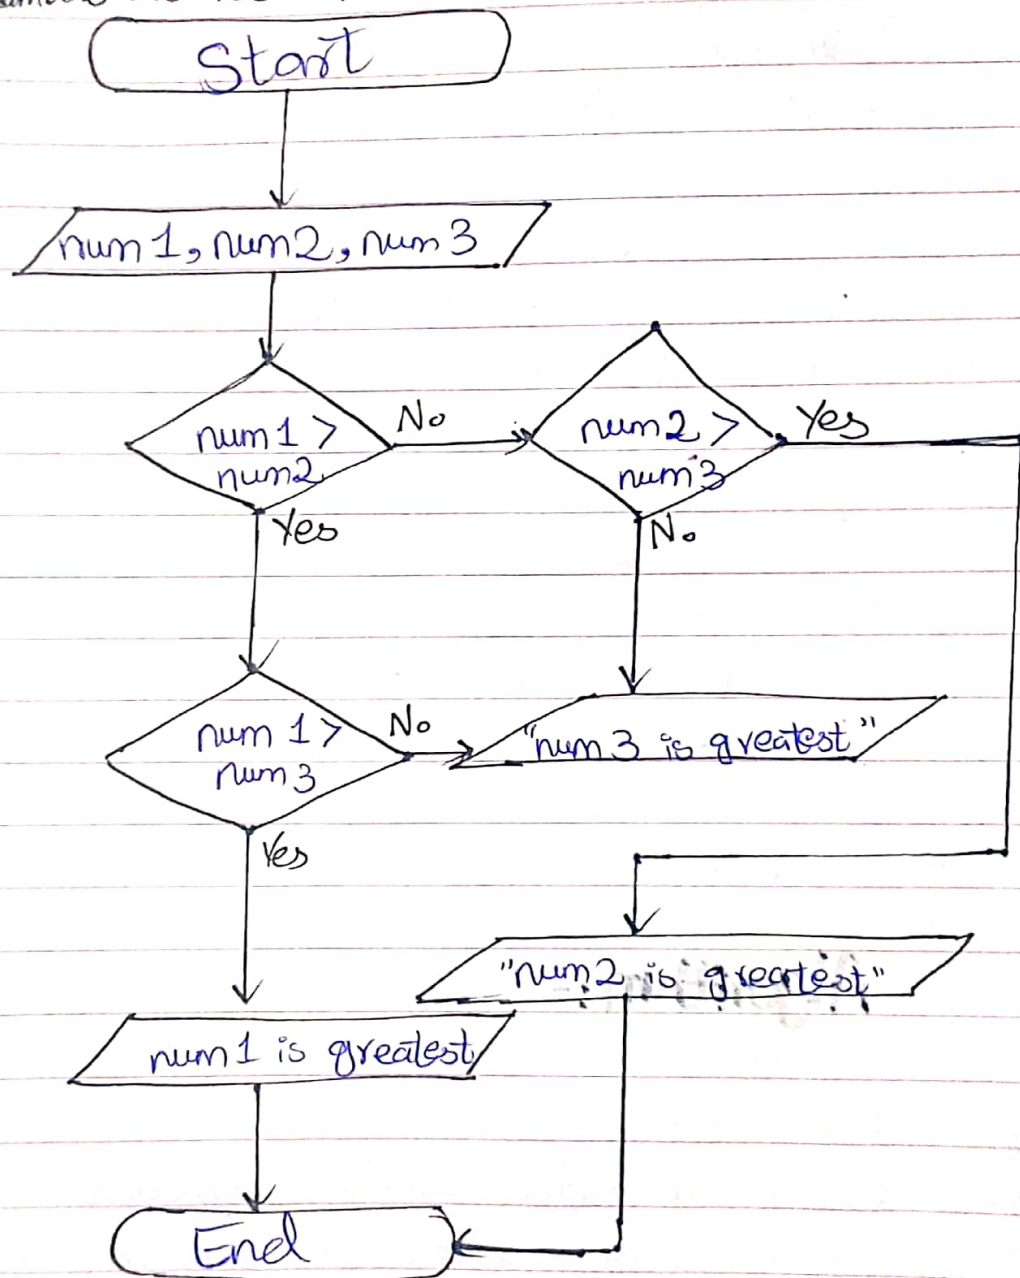 Start
num1, num2, num3
num1 >
num2
No
num2 >
num3
Yes
Yes
No
num 1 >
num3
No
"num3 is greatest"
Yes
"num2 is greatest"
num1 is greatest
End